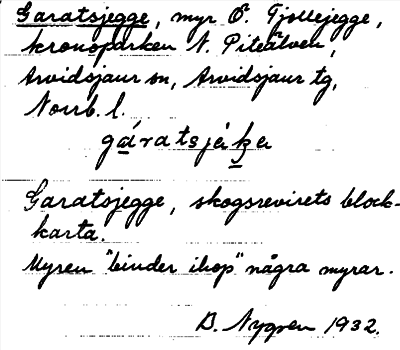 Garatsjegge, myr Ö. Tjollejegge,
kronoparken N. Piteälven,
Arvidsjaur sn, Arvidsjaur tg,
Norrb. l.
gáratsjeʹ
Garatsjegge, skogsrevirets block-
karta.
Myren "binder ihop" några myrar.
B. Nygren 1932.